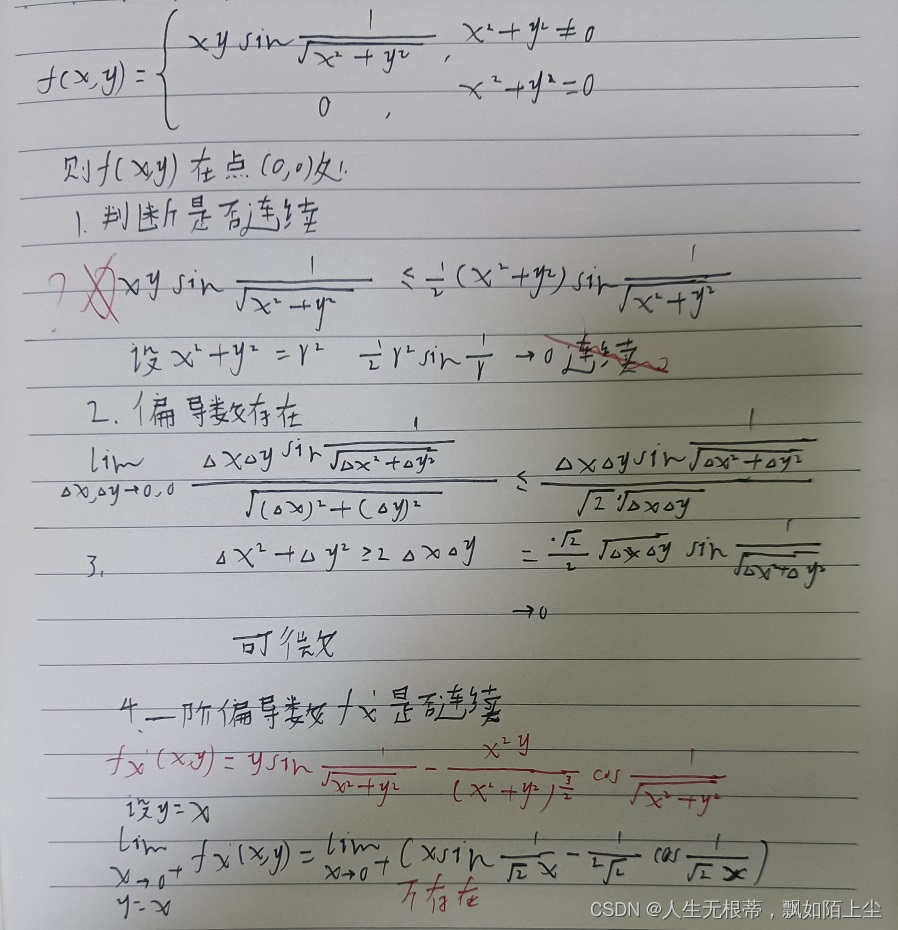 f(x,y) = { xy sin 1/√(x²+y²) , x²+y²≠0
0 , x²+y²=0
则f(x,y) 在点 (0,0)处.
1. 判断是否连续
? xy sin 1/√(x²+y²) ≤ 1/2 (x²+y²) sin 1/√(x²+y²)
设 x²+y² = r² 1/2 r² sin 1/r → 0 连续
2. 偏导数存在
lim Δx,Δy→0,0 ΔxΔy sin 1/√(Δx²+Δy²) / √((Δx)²+(Δy)²) ≤ ΔxΔy sin 1/√(Δx²+Δy²) / √2·√ΔxΔy
3. Δx²+Δy² ≥ 2ΔxΔy = √2/2 √ΔxΔy sin 1/√(Δx²+Δy²)
→0
可微
4. 一阶偏导数 fx' 是否连续
fx'(x,y) = y sin 1/√(x²+y²) - x²y/(x²+y²)^(3/2) cos 1/√(x²+y²)
设y=x
lim x→0⁺ y=x fx'(x,y) = lim x→0⁺ (x sin 1/√2 x - 1/2√2 cos 1/√2 x)
不存在
CSDN @人生无根蒂，飘如陌上尘